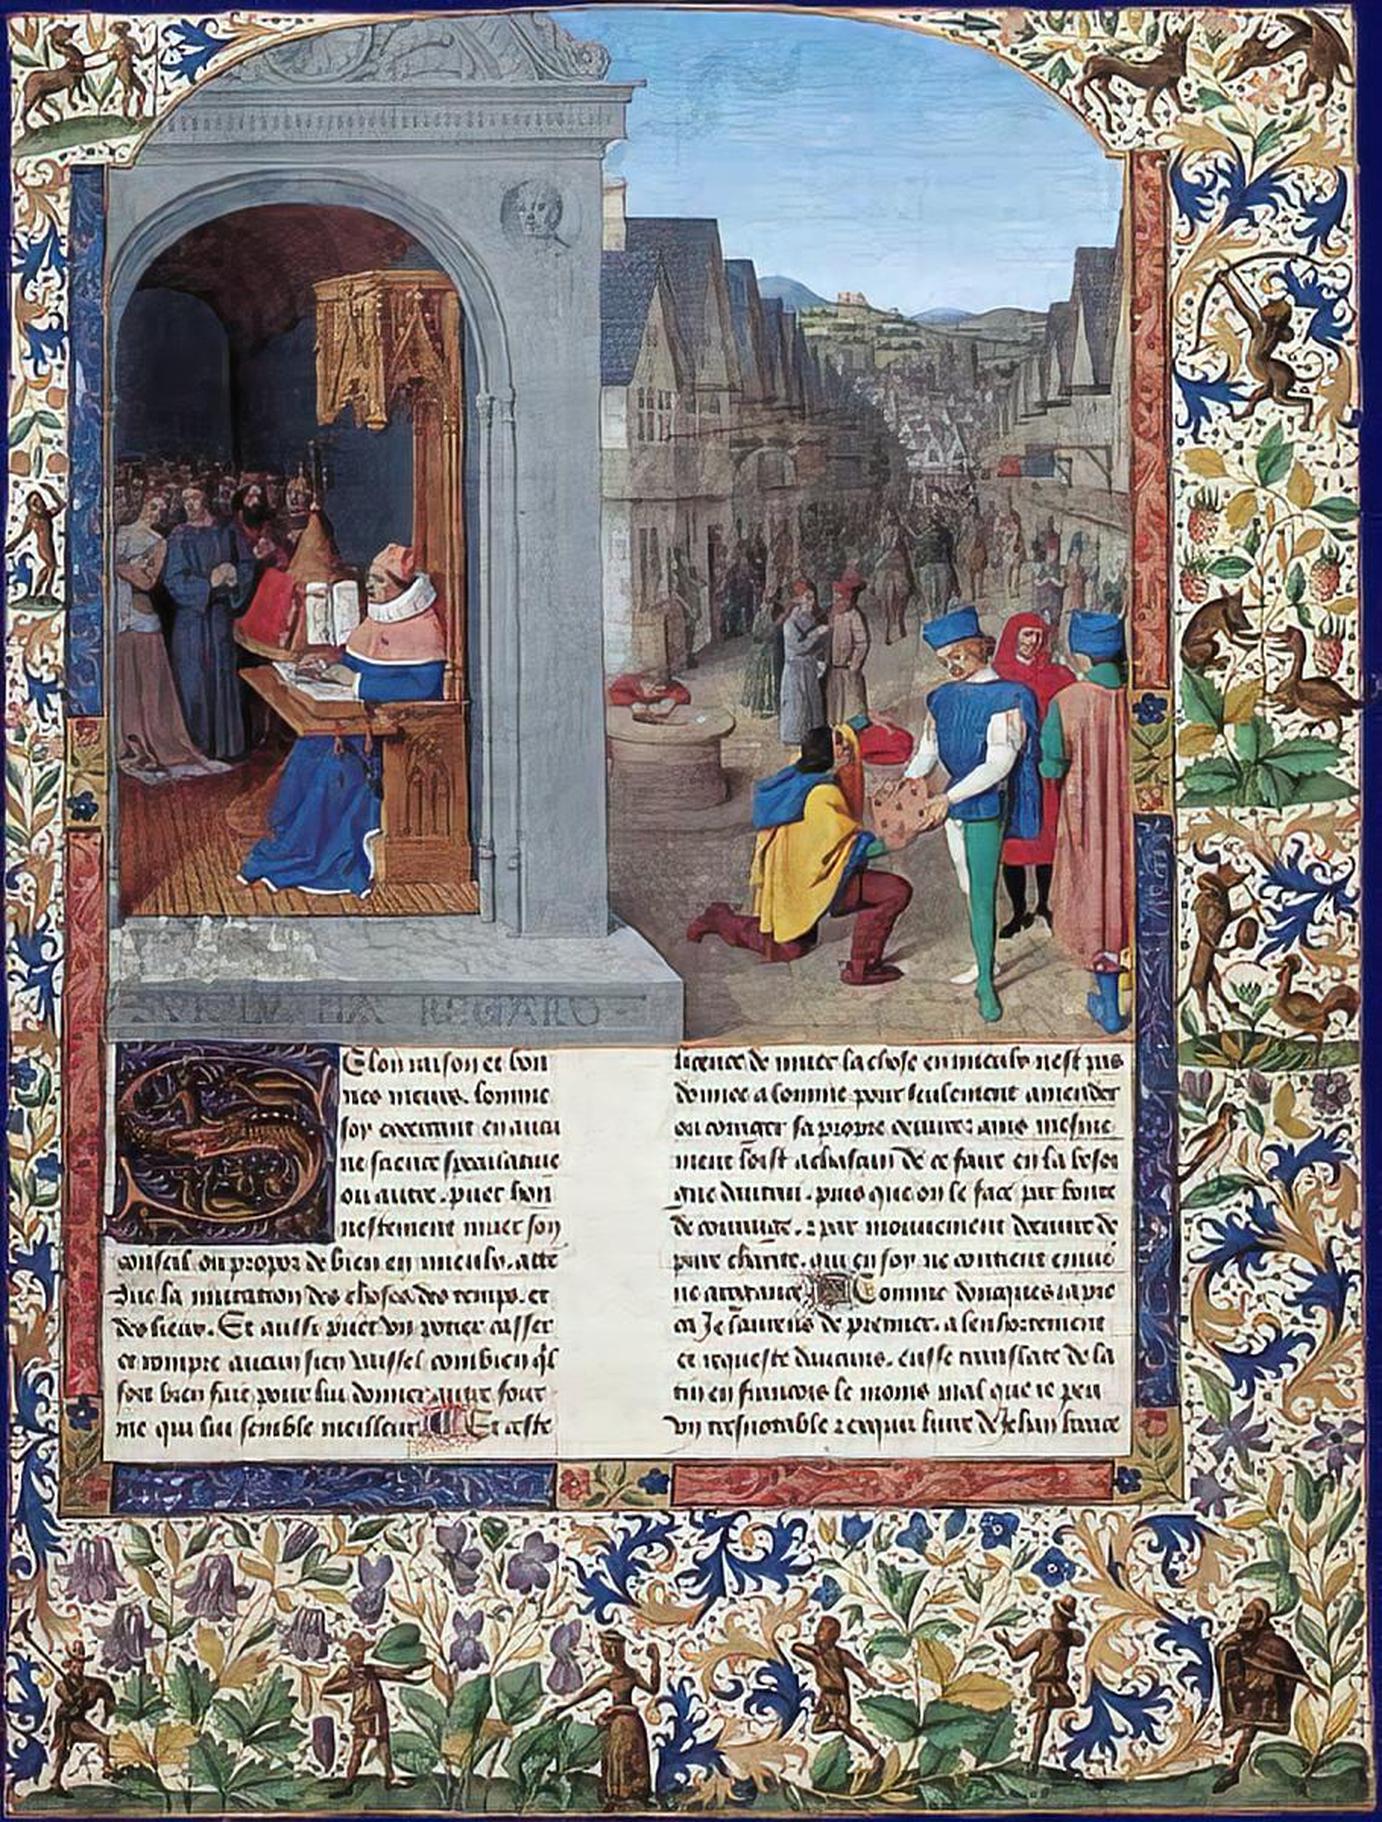 SVR LY NA REGARD
Selon raison et bon
nes meurs. lomme
soy excercant en aucu
ne science speculatiue
ou autre. puet hon
nestement muer son
conseil ou propoz de bien en mieulx. atte
due la mutacion des choses des temps. et
des lieux. Et aussi puet vn potier casser
et rompre aucun sien vaissel combien q̃l
soit bien fait pour lui donner autre four
me qui lui semble meilleur Et ceste
licence de muer la chose en mieulx nest pas
donnee a lomme pour seulement amender
ou corriger sa propre oeuure: ains mesme
ment loist a chascun de ce faire en la beson
gne dautrui. puis que on le face par bonte
de courage. z par mouuement de
pure charite. qui en soy ne contient enuie
ne arrogance Comme doncques iapie
ca Je laurens de premier. a lenhortement
et requeste daucuns. eusse translate de la
tin en francois le moins mal que ie peu
vn tresnotable z exquis liure de Jehan bocce